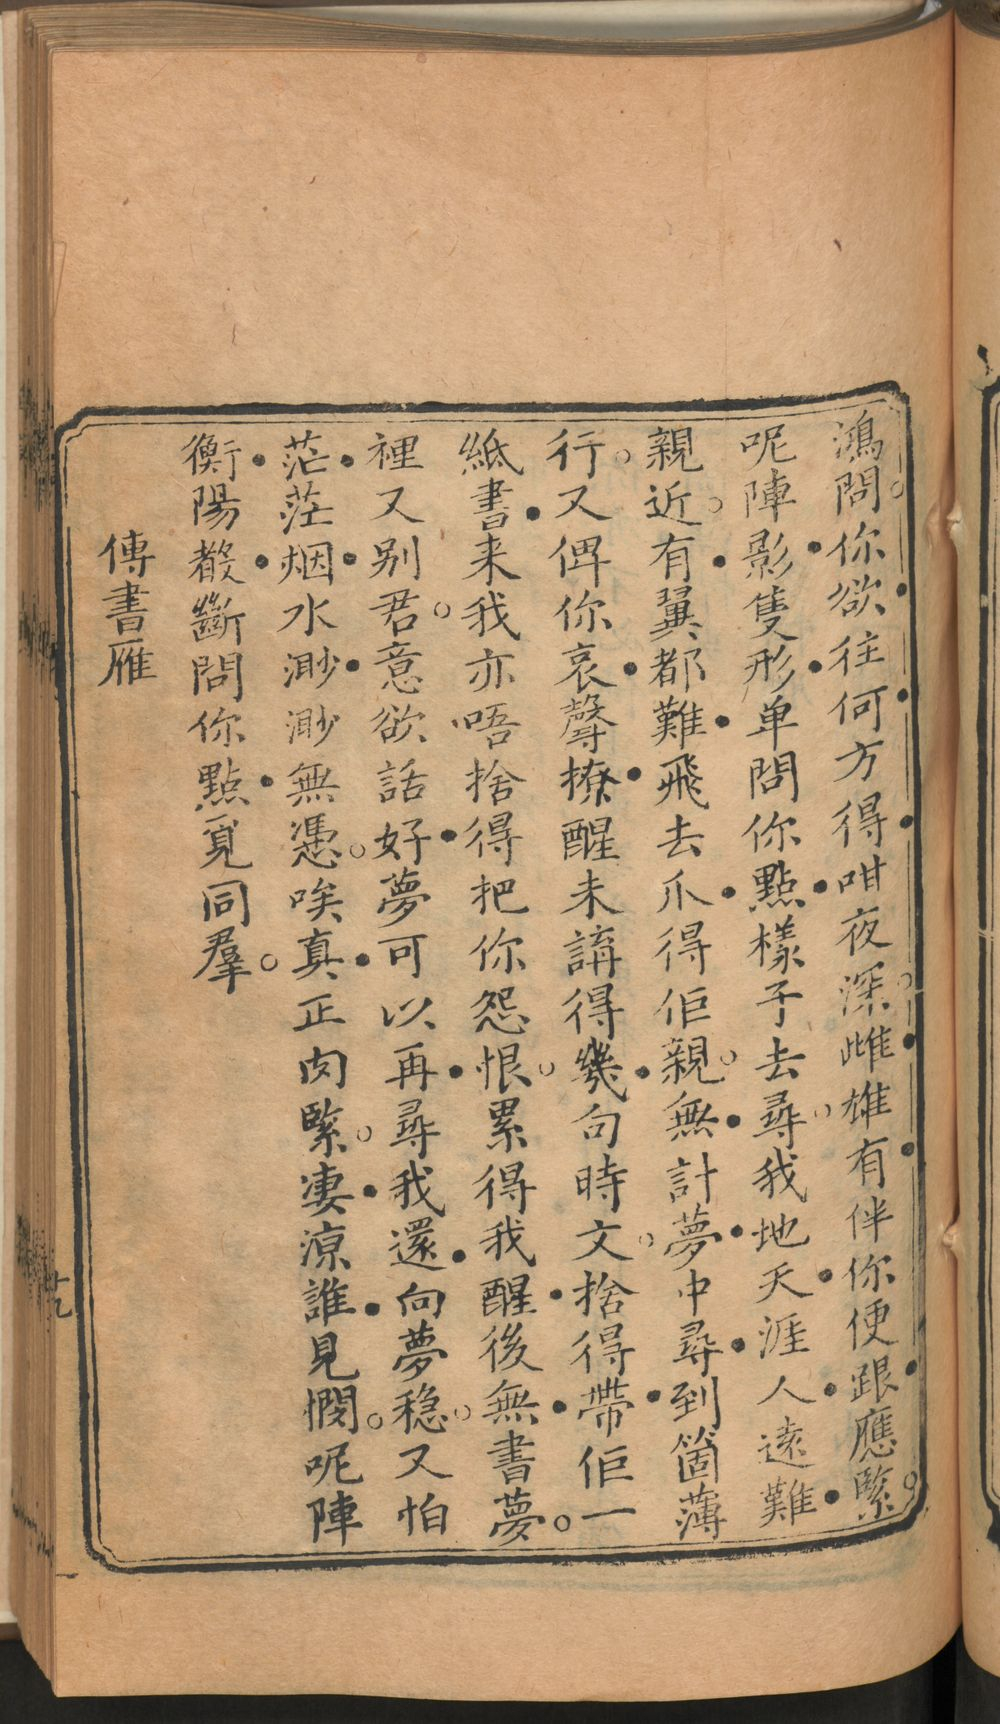 鴻問。你欲往何方得咁夜深。雌雄有伴你便跟應緊。
呢陣影隻形单問你點樣子去尋。我地天涯人遠難
親近。有翼都難飛去爪得佢親。無計夢中尋到箇薄
行。又俾你哀聲撩醒未講得幾句時文。捨得帶佢一
紙書来我亦唔捨得把你怨恨。累得我醒後無書夢。
裡又别君。意欲話好夢可以再尋我還向夢稳。又怕
茫茫烟水渺渺無憑。唉真正肉緊。凄凉誰見憫。呢陣
衡陽聲斷問你點覓同羣。
傳書雁
廿九